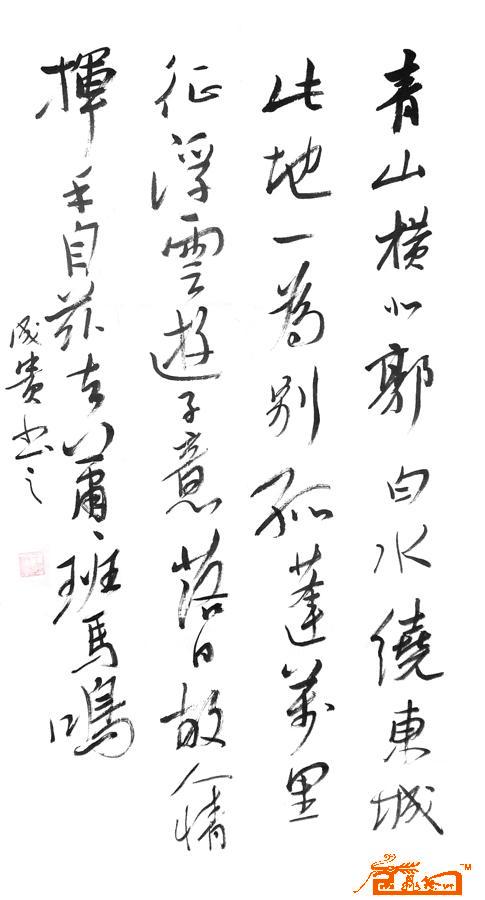 青山橫北郭白水繞東城
此地一為別孤蓬萬里
征浮雲遊子意落日故人情
揮手自茲去蕭〻班馬鳴
成贵书之